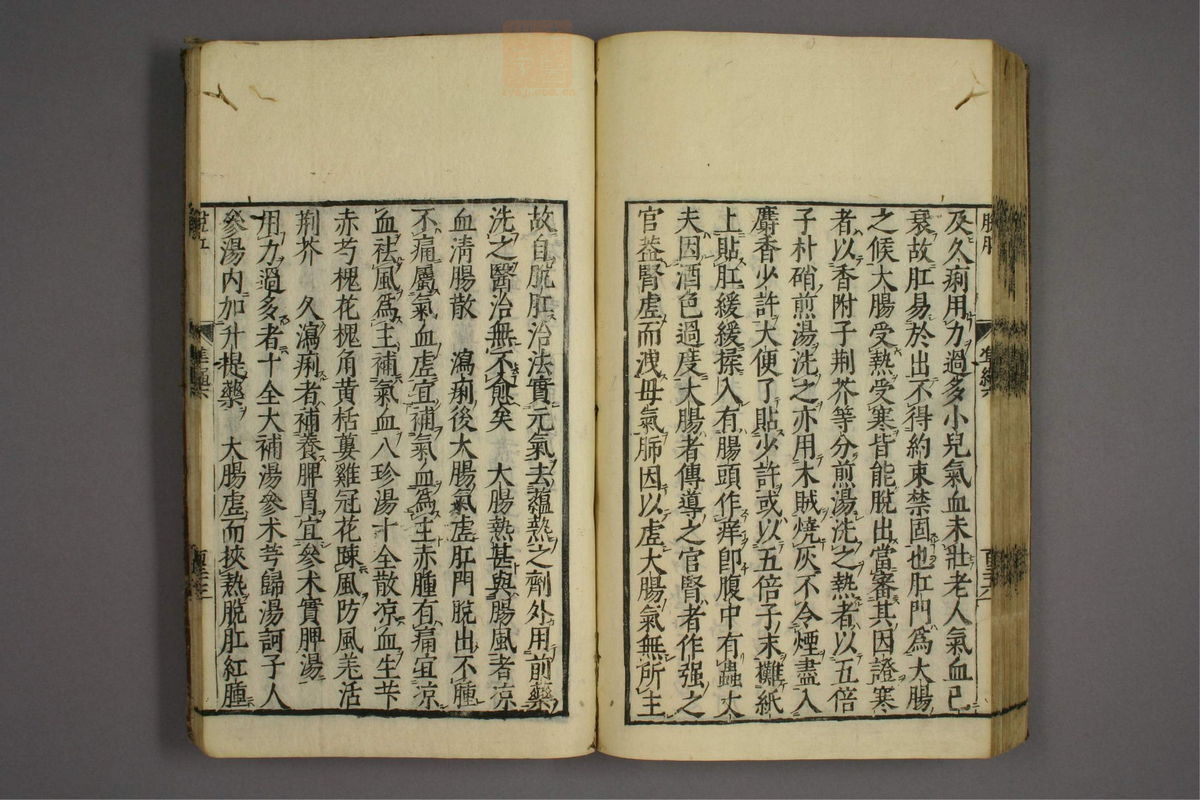 及久痢用力過多小兒氣血未壯老人氣血已
衰故肛易於出不得約束禁固也肛門爲大腸
之候大腸受熱受寒皆能脫出當審其因證寒
者以香附子荆芥等分煎湯洗之熱者以五倍
子朴硝煎湯洗之亦用木賊燒灰不令煙盡入
麝香少許大便了貼少許或以五倍子末攤紙
上貼肛緩緩揉入有腸頭作痒卽腹中有蟲丈
夫因酒色過度大腸者傳導之官腎者作强之
官葢腎虛而洩母氣肺因以虛大腸氣無所主
故自脫肛治法實元氣去蘊熱之劑外用前藥
洗之醫治無不愈矣　大腸熱甚與腸風者凉
血淸腸散　瀉痢後大腸氣虛肛門脫出不腫
不痛屬氣血虛宜補氣血爲主赤腫有痛宜凉
血祛風爲主補氣血八珍湯十全散凉血生苄
赤芍槐花槐角黄栝蔞雞冠花踈風防風羌活
荆芥　久瀉痢者補養脾胃宜參术實脾湯
用力過多者十全大補湯參术芎歸湯訶子人
參湯内加升提藥　大腸虛而挾熱脫肛紅腫
脫肛